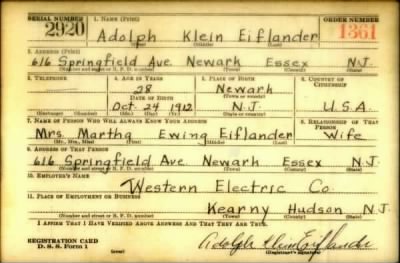 SERIAL NUMBER 1. NAME (Print) ORDER NUMBER
2920 Adolph Klein Eiflander 1361
2. ADDRESS (Print)
616 Springfield Ave. Newark Essex N.J.
(Number and street or R. F. D. number) (Town) (County) (State)
3. TELEPHONE 4. AGE IN YEARS 5. PLACE OF BIRTH 6. COUNTRY OF CITIZENSHIP
28 Newark
DATE OF BIRTH (Town or county)
Oct. 24 1912 N.J. U.S.A.
(Exchange) (Number) (Mo.) (Day) (Yr.) (State or country)
7. NAME OF PERSON WHO WILL ALWAYS KNOW YOUR ADDRESS 8. RELATIONSHIP OF THAT PERSON
Mrs. Martha Ewing Eiflander Wife
(Mr., Mrs., Miss) (First) (Middle) (Last)
9. ADDRESS OF THAT PERSON
616 Springfield Ave. Newark Essex N.J.
(Number and street or R. F. D. number) (Town) (County) (State)
10. EMPLOYER'S NAME
Western Electric Co.
11. PLACE OF EMPLOYMENT OR BUSINESS
Kearny Hudson N.J.
(Number and street or R. F. D. number) (Town) (County) (State)
I AFFIRM THAT I HAVE VERIFIED ABOVE ANSWERS AND THAT THEY ARE TRUE.
REGISTRATION CARD Adolph Klein Eiflander
D. S. S. Form 1 (over) (Registrant's signature)